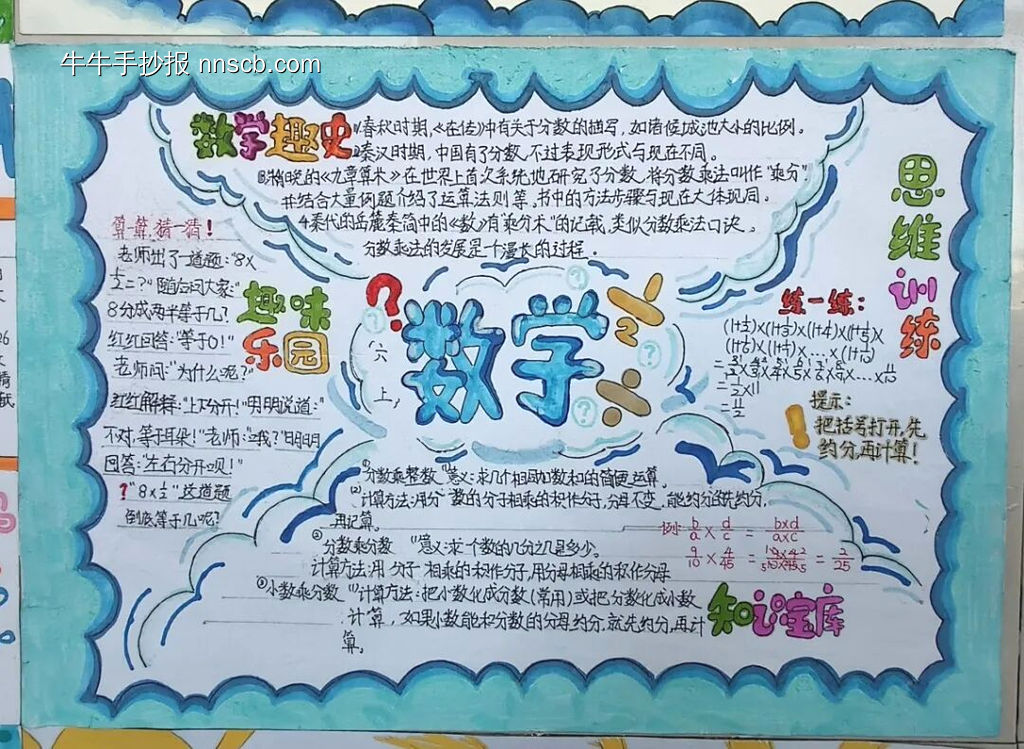 牛牛手抄报 nnscb.com
数学趣史
1.春秋时期,《左传》中有关于分数的描写,如诸侯城池大小的比例。
2.秦汉时期,中国有了分数,不过表现形式与现在不同。
的《九章算术》在世界上首次系统地研究了分数,将分数乘法叫作"乘分",
并结合大量例题介绍了运算法则等,书中的方法步骤与现在大体现同。
4.秦代的岳麓秦简中的《数》有"乘分术"的记载,类似分数乘法口诀。
分数乘法的发展是一个漫长的过程.
算一算,猜一猜!
老师出了一道题:"8×
1/2=?"随后问大家:"
8分成两半等于几?
红红回答:"等于0!"
老师问:"为什么呢?"
红红解释:"上下分开!"明明说道:"
不对,等于耳朵!"老师:"哦?"明明
回答:"左右分开呗!"
?"8×1/2"这道题
倒底等于几呢?
趣味
乐园
?
六
上
数学
思维训练
练一练:
(1+1/2)×(1+1/3)×(1+1/4)×(1+1/5)×
(1+1/6)×(1+1/7)×...×(1+1/10)
=3/2×4/3×5/4×6/5×7/6×8/7×...×11/10
=1/2×11
=11/2
提示:
把括号打开,先
约分,再计算!
①分数乘整数 意义:求几个相同加数和的简便运算。
计算方法:用分数的分子相乘的积作分子,分母不变,能约分的先约分,
再计算。
②分数乘分数 意义:求一个数的几分之几是多少。
计算方法:用分子相乘的积作分子,用分母相乘的积作分母
例: b/a × d/c = b×d/a×c
9/10 × 4/45 = = 2/25
③小数乘分数 计算方法:把小数化成分数(常用)或把分数化成小数
计算,如果小数能和分数的分母约分,就先约分,再计
算。
知识宝库